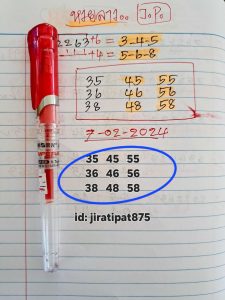 หวยลาว.. J.P.
2263+6 = 3-4-5
+4 = 5-6-8
35 45 55
36 46 56
38 48 58
7-02-2024
35 45 55
36 46 56
38 48 58
id: jiratipat875